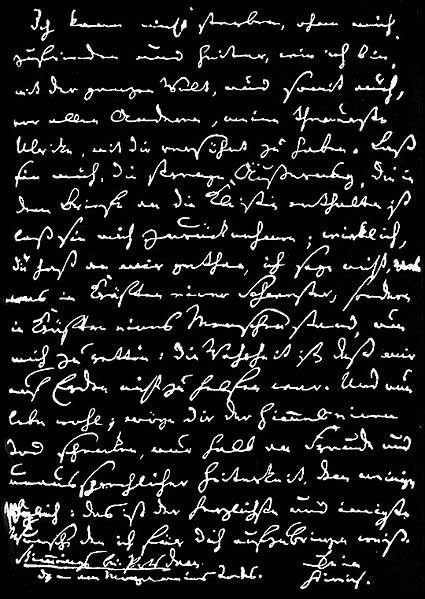 Ich kann nicht sterben, ohne mich,
zufrieden und heiter, wie ich bin,
mit der ganzen Welt, und somit auch,
vor allen Anderen, meine theuerste
Ulrike, mit dir versöhnt zu haben. Laß
sie mich, die strenge Äußerung, die in
dem Briefe an die Kleisten enthalten ist
laß sie mich zurücknehmen; wirklich,
du hast an mir gethan, ich sage nicht,
was in Kräften einer Schwester, sondern
in Kräften eines Menschen stand, um
mich zu retten: die Wahrheit ist, daß mir
auf Erden nicht zu helfen war. Und nun
lebe wohl; möge dir der Himmel einen
Tod schenken, nur halb an Freude und
unaussprechlicher Heiterkeit, dem meinigen
gleich: das ist der herzlichste und innigste
Wunsch, den ich für dich aufzubringen weiß.
Stimmings bei Potsdam. Dein
d — am Morgen meines Todes. Heinrich.